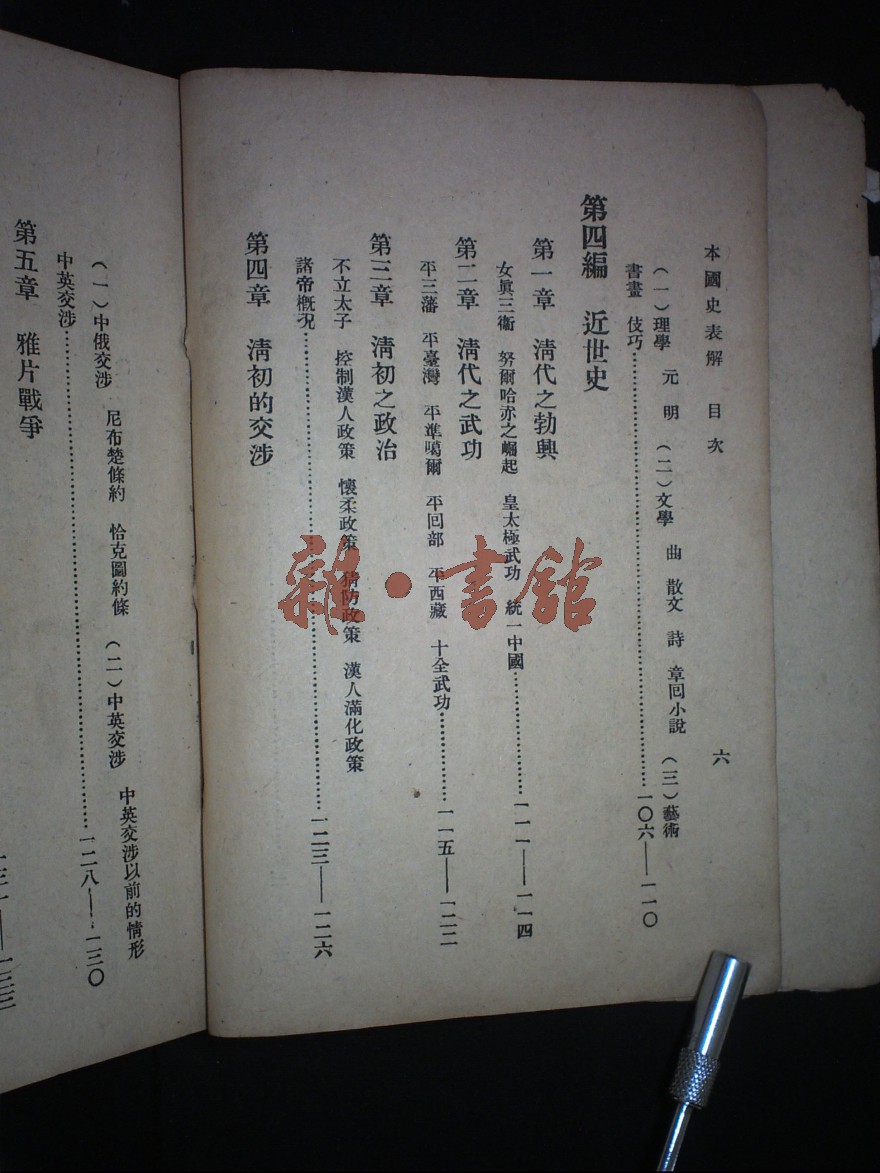 本國史表解　目次　六
（一）理學　元　明　（二）文學　曲　散文　詩　章回小說　（三）藝術
書畫　伎巧……一〇六——一一〇
第四編　近世史
第一章　清代之勃興
女眞三衞　努爾哈赤之崛起　皇太極武功　統一中國……一一一——一一四
第二章　清代之武功
平三藩　平臺灣　平準噶爾　平回部　平西藏　十全武功……一一五——一二二
第三章　清初之政治
不立太子　控制漢人政策　懷柔政策　猜防政策　漢人滿化政策
諸帝槪況……一二三——一二六
第四章　清初的交涉
（一）中俄交涉　尼布楚條約　恰克圖約條　（二）中英交涉　中英交涉以前的情形
中英交涉……一二八——一三〇
第五章　雅片戰爭
一三一——一三三
雜·書館